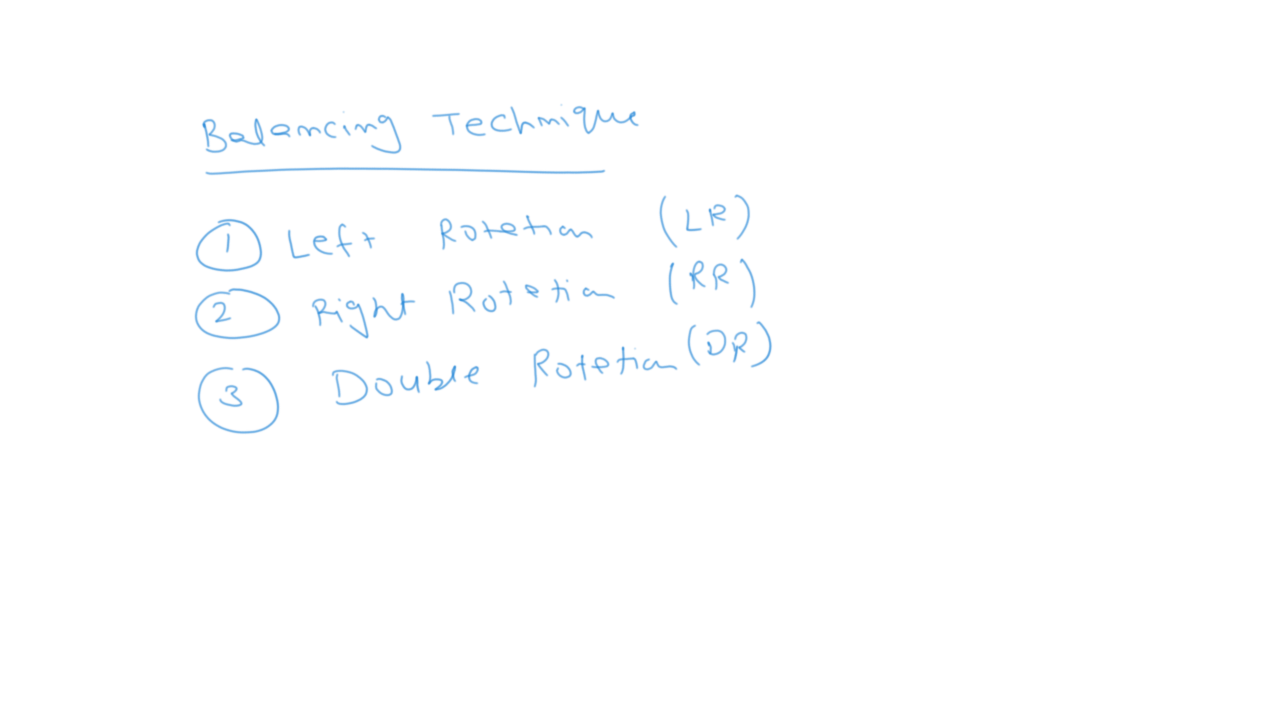 Balancing Technique
1 Left Rotation (LR)
2 Right Rotation (RR)
3 Double Rotation (DR)